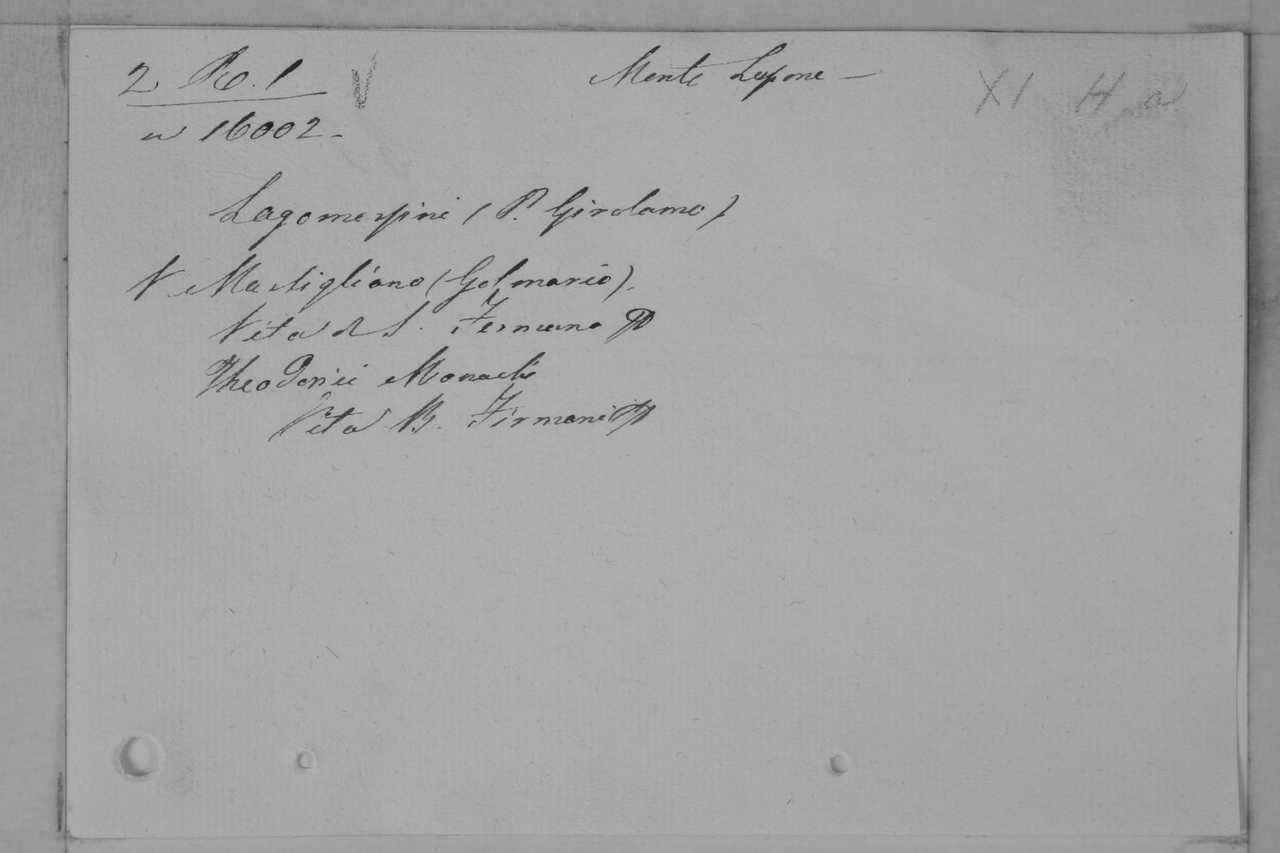 2. R. 1
V
Monte Lupone —
XI H a
n 16002 -
Lagomarsini (P. Girolamo)
V. Martigliano (Gelmario).
Vita di S. Fermano
Theodorici Monachi
Vita B. Firmani